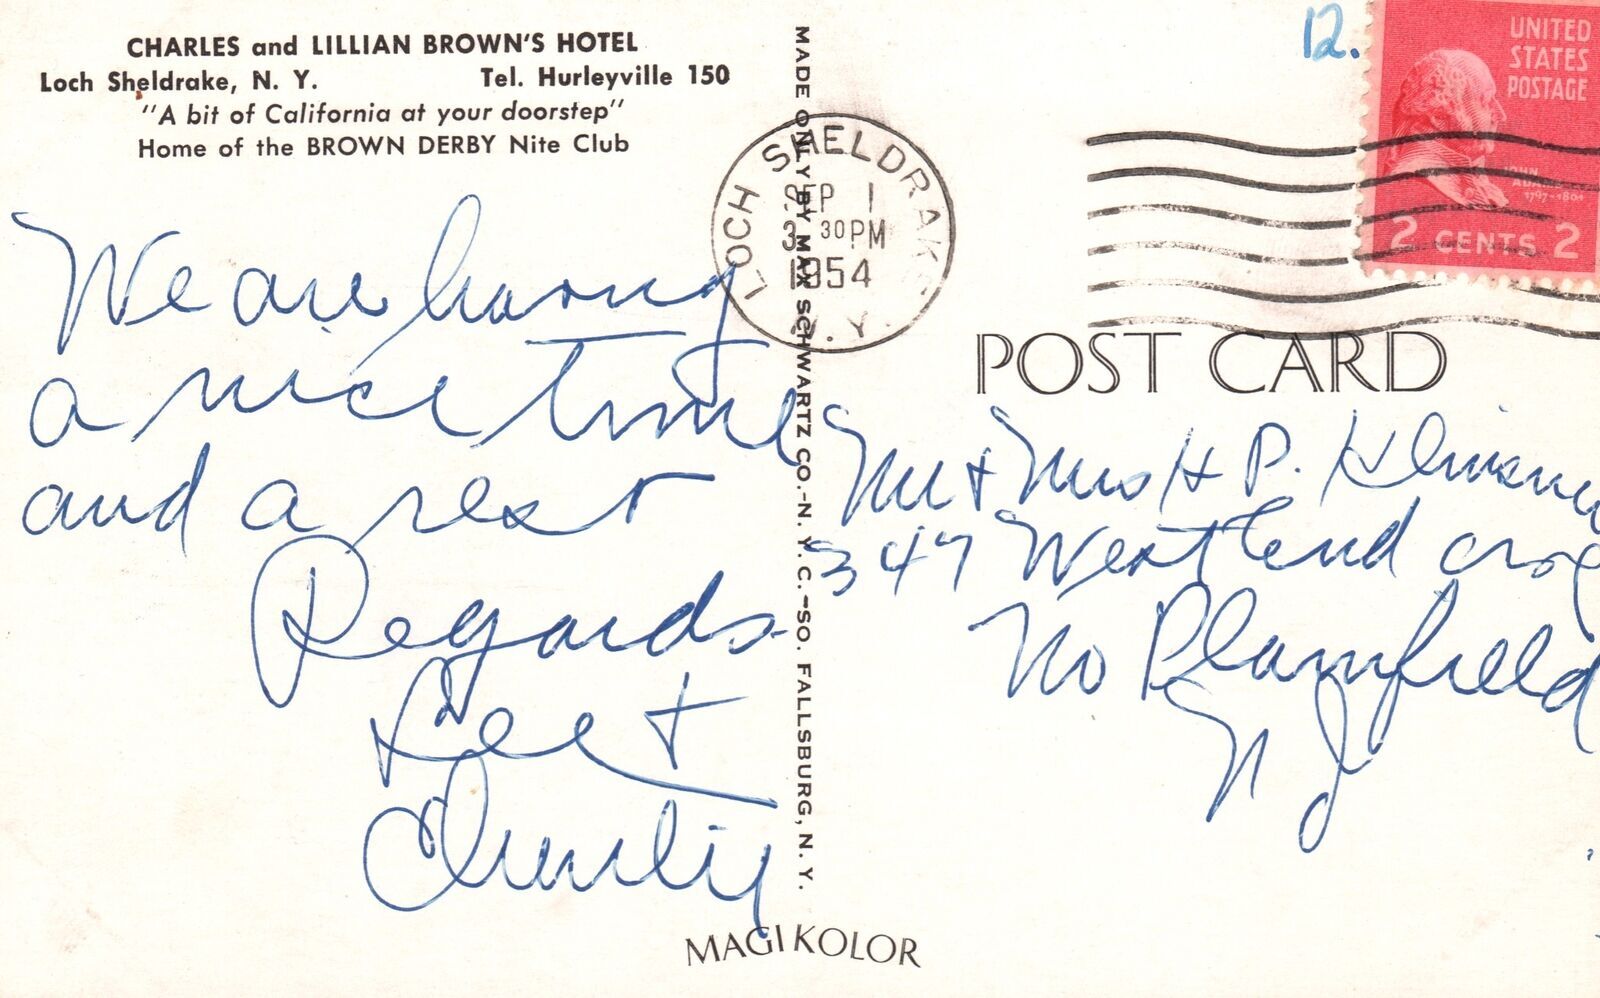 CHARLES and LILLIAN BROWN'S HOTEL
Loch Sheldrake, N. Y. Tel. Hurleyville 150
"A bit of California at your doorstep"
Home of the BROWN DERBY Nite Club
We are having
a nice time
and a rest
Regards
Lee +
Charlie
MADE ONLY BY MAX SCHWARTZ CO.-N. Y. C.-SO. FALLSBURG, N. Y.
MAGI KOLOR
LOCH SHELDRAKE
SEP 1
3 30 PM
1954
N.Y.
12.
UNITED
STATES
POSTAGE
JOHN
ADAMS
1797-1801
2 CENTS 2
POST CARD
Mr + Mrs H P.
347 West End ave
No Plainfield
N J